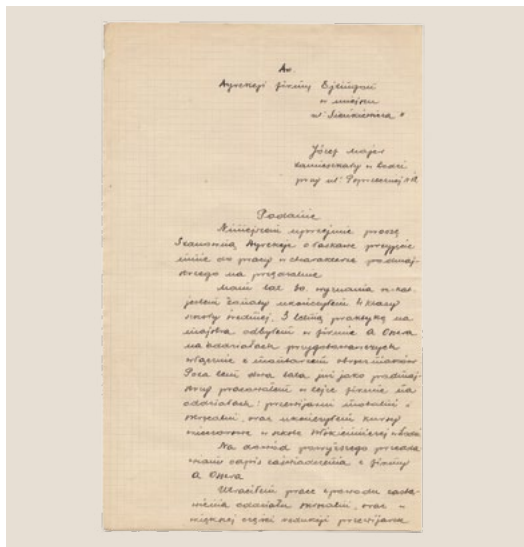 Do
Dyrekcji firmy Ejtingon
w miejscu
ul. Sienkiewicza
Józef Majer
zamieszkały w Łodzi
przy ul.
Podanie
Niniejszem uprzejmie proszę
Szanowną Dyrekcję o łaskawe przyjęcie
mnie do pracy w charakterze podmaj-
strzego na przędzalnię
Mam lat 30, wyznania
jestem żonaty ukończyłem 4 klasy
szkoły średniej. 3 letnią praktykę na
majstra odbyłem w firmie A
na oddziałach przygotowawczych
włącznie z
Poza tem dwa lata już jako podmaj-
strzy pracowałem w tejże firmie na
oddziałach: przewijalni motalni i
skręcalni, oraz ukończyłem kursy
wieczorowe w szkole Włókienniczej w Łodzi
Na dowód powyższego przedsta-
wiam odpis zaświadczenia z firmy
A
Utraciłem pracę z powodu zasta-
nienia oddziału skręcalni, oraz w
większej części redukcji przewijarek